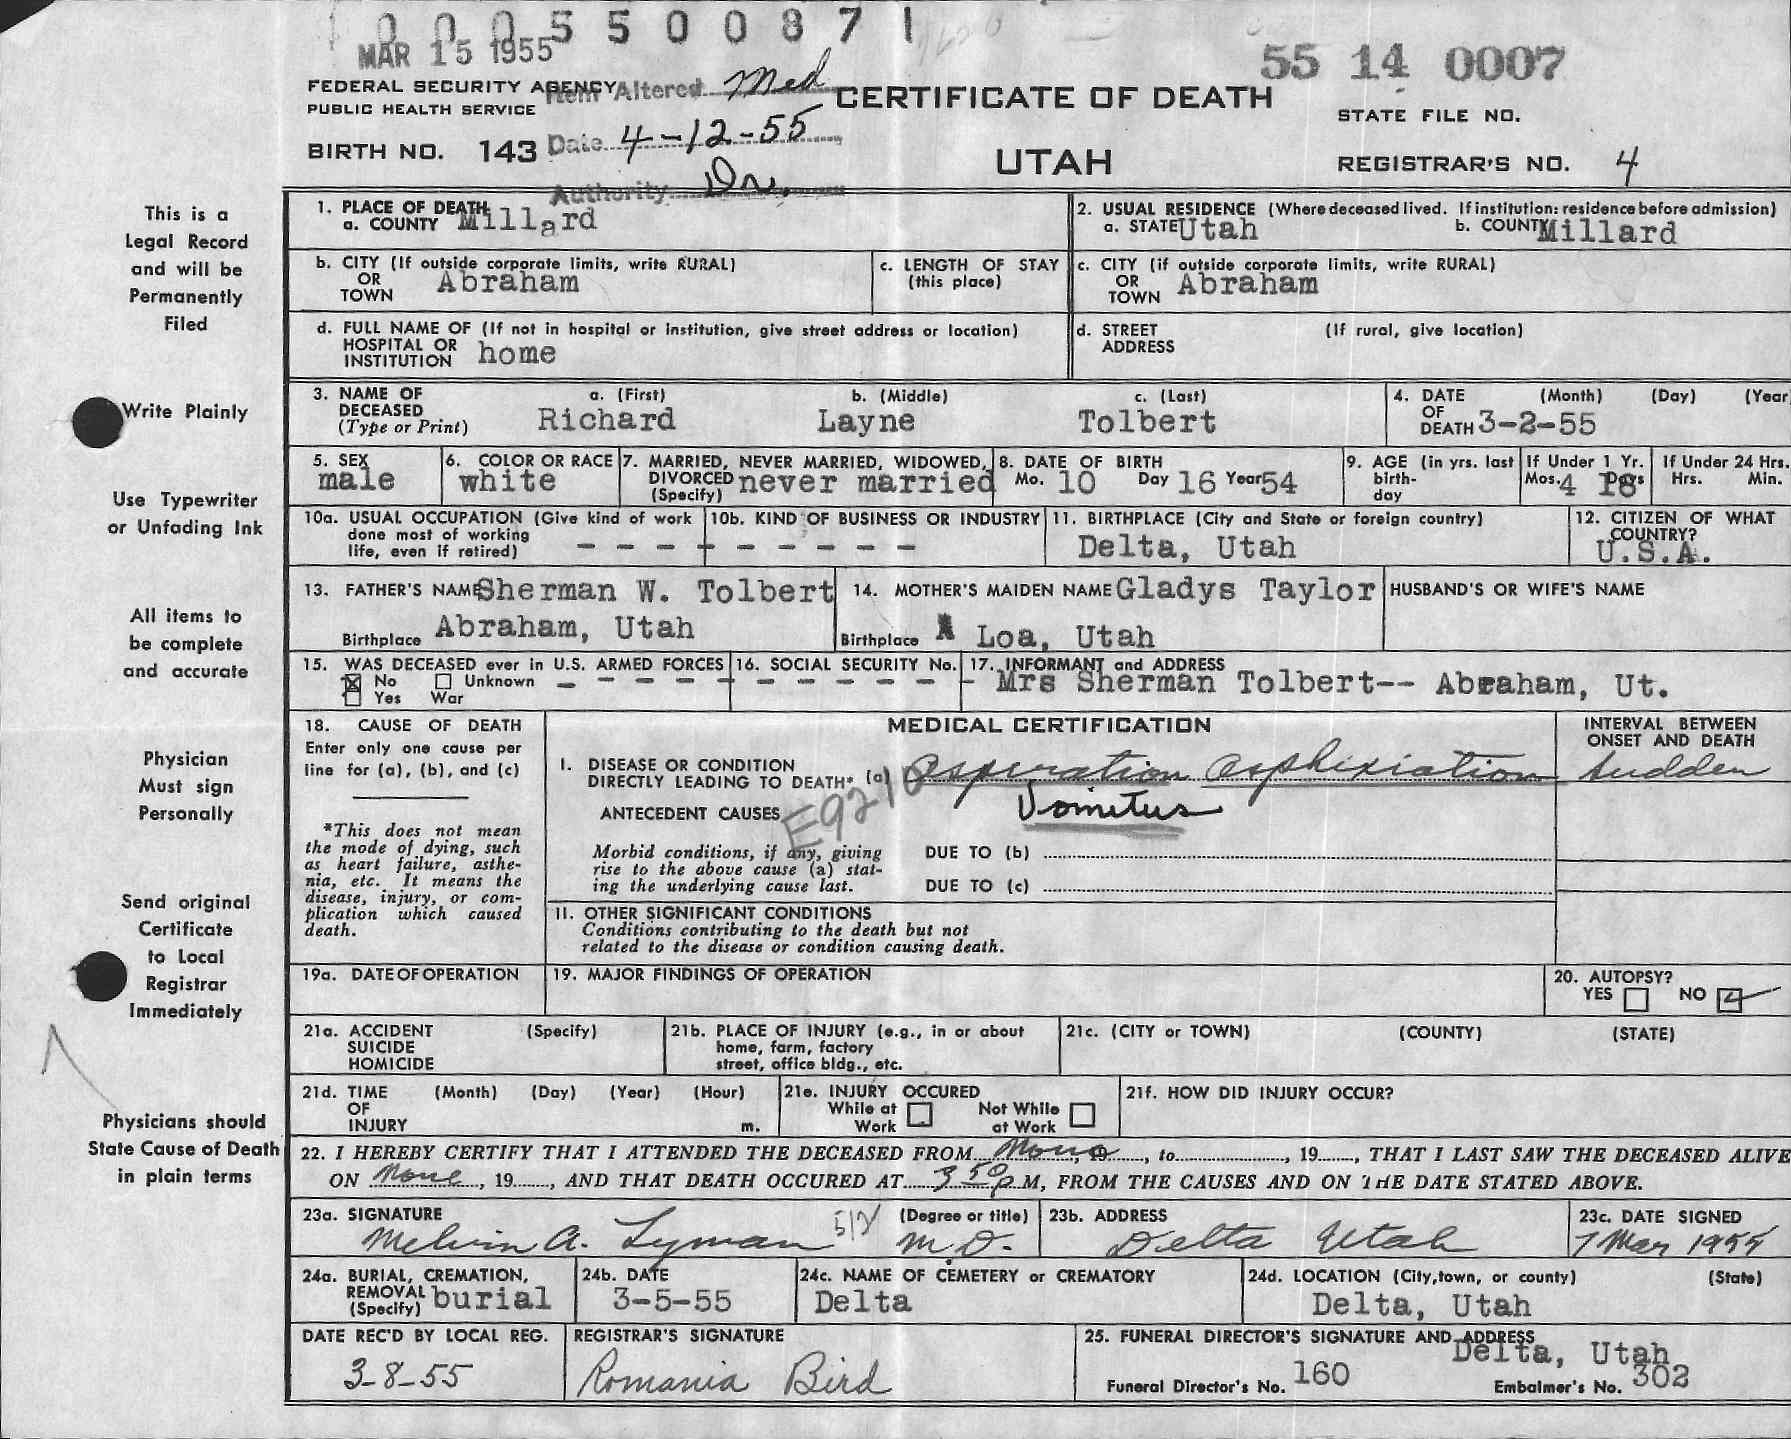 0 0 0 5 5 0 0 8 7 1
MAR 15 1955
55 14 0007
FEDERAL SECURITY AGENCY
PUBLIC HEALTH SERVICE
Item Altered Med
CERTIFICATE OF DEATH
STATE FILE NO.
BIRTH NO. 143
Date 4-12-55
UTAH
REGISTRAR'S NO. 4
Authority Dr.
This is a
Legal Record
and will be
Permanently
Filed
1. PLACE OF DEATH
a. COUNTY Millard
2. USUAL RESIDENCE (Where deceased lived. If institution: residence before admission)
a. STATE Utah b. COUNTY Millard
b. CITY (If outside corporate limits, write RURAL)
OR
TOWN Abraham
c. LENGTH OF STAY
(this place)
c. CITY (if outside corporate limits, write RURAL)
OR
TOWN Abraham
d. FULL NAME OF (If not in hospital or institution, give street address or location)
HOSPITAL OR
INSTITUTION home
d. STREET (If rural, give location)
ADDRESS
Write Plainly
3. NAME OF
DECEASED
(Type or Print)
a. (First) b. (Middle) c. (Last)
Richard Layne Tolbert
4. DATE (Month) (Day) (Year
OF
DEATH 3-2-55
Use Typewriter
or Unfading Ink
5. SEX
male
6. COLOR OR RACE
white
7. MARRIED, NEVER MARRIED, WIDOWED,
DIVORCED
(Specify) never married
8. DATE OF BIRTH
Mo. 10 Day 16 Year 54
9. AGE (in yrs. last
birth-
day
If Under 1 Yr.
Mos. 4 Days 18
If Under 24 Hrs.
Hrs. Min.
10a. USUAL OCCUPATION (Give kind of work
done most of working
life, even if retired) - - - -
10b. KIND OF BUSINESS OR INDUSTRY
- - - - -
11. BIRTHPLACE (City and State or foreign country)
Delta, Utah
12. CITIZEN OF WHAT
COUNTRY?
U.S.A.
All items to
be complete
and accurate
13. FATHER'S NAME Sherman W. Tolbert
Birthplace Abraham, Utah
14. MOTHER'S MAIDEN NAME Gladys Taylor
Birthplace Loa, Utah
HUSBAND'S OR WIFE'S NAME
15. WAS DECEASED ever in U.S. ARMED FORCES
☒ No ☐ Unknown
☐ Yes War
16. SOCIAL SECURITY No.
17. INFORMANT and ADDRESS
Mrs Sherman Tolbert-- Abraham, Ut.
Physician
Must sign
Personally
18. CAUSE OF DEATH
Enter only one cause per
line for (a), (b), and (c)
*This does not mean
the mode of dying, such
as heart failure, asthe-
nia, etc. It means the
disease, injury, or com-
plication which caused
death.
MEDICAL CERTIFICATION
INTERVAL BETWEEN
ONSET AND DEATH
I. DISEASE OR CONDITION
DIRECTLY LEADING TO DEATH* (a) Aspiration Asphixiation sudden
ANTECEDENT CAUSES Vomitus
E921
Morbid conditions, if any, giving
rise to the above cause (a) stat-
ing the underlying cause last.
DUE TO (b)
DUE TO (c)
II. OTHER SIGNIFICANT CONDITIONS
Conditions contributing to the death but not
related to the disease or condition causing death.
Send original
Certificate
to Local
Registrar
Immediately
19a. DATE OF OPERATION
19. MAJOR FINDINGS OF OPERATION
20. AUTOPSY?
YES ☐ NO ☑
21a. ACCIDENT (Specify)
SUICIDE
HOMICIDE
21b. PLACE OF INJURY (e.g., in or about
home, farm, factory
street, office bldg., etc.
21c. (CITY or TOWN) (COUNTY) (STATE)
21d. TIME (Month) (Day) (Year) (Hour)
OF
INJURY m.
21e. INJURY OCCURED
While at Work ☐ Not While at Work ☐
21f. HOW DID INJURY OCCUR?
Physicians should
State Cause of Death
in plain terms
22. I HEREBY CERTIFY THAT I ATTENDED THE DECEASED FROM None, 19, to, 19, THAT I LAST SAW THE DECEASED ALIVE
ON None, 19, AND THAT DEATH OCCURED AT 3 50 P M, FROM THE CAUSES AND ON THE DATE STATED ABOVE.
23a. SIGNATURE (Degree or title)
Melvin A. Lyman M.D.
23b. ADDRESS
Delta Utah
23c. DATE SIGNED
7 Mar 1955
24a. BURIAL, CREMATION,
REMOVAL
(Specify) burial
24b. DATE
3-5-55
24c. NAME OF CEMETERY or CREMATORY
Delta
24d. LOCATION (City, town, or county) (State)
Delta, Utah
DATE REC'D BY LOCAL REG.
3-8-55
REGISTRAR'S SIGNATURE
Romania Bird
25. FUNERAL DIRECTOR'S SIGNATURE AND ADDRESS
Delta, Utah
Funeral Director's No. 160 Embalmer's No. 302